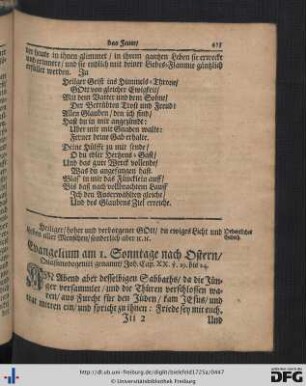 das Jamr/ 435
der heute in ihnen glimmet / in ihrem gantzen Leben sie erwecke
und ermuntre / und sie endlich mit deiner Liebes-Flamme gäntzlich
erfüllet werden. Ja
Heiliger Geist ins Himmels-Thron/
GOtt von gleicher Ewigkeit/
Mit dem Vatter und dem Sohne/
Der Betrübten Trost und Freud!
Allen Glauben / den ich find/
Hast du in mir angezündt:
Uber mir mit Gnaden walte:
Ferner deine Gab erhalte.
Deine Hülffe zu mir sende/
O du edler Hertzens-Gast!
Und das gute Werck vollende/
Was du angefangen hast.
Blas' in mir das Fünklein auff/
Bis daß nach vollbrachtem Lauff
Ich den Außerwählten gleiche/
Und des Glaubens Ziel erreiche.
Heiliger / hoher und verborgener GOtt / du ewiges Licht und
Leben aller Menschen / sonderlich aber ıc. ıc.
Ordentliches
Gebeth.
Evangelium am 1. Sonntage nach Ostern/
Quasimodogeniti genannt / Joh. Cap. XX. v. 19. bis 24.
AM Abend aber desselbigen Sabbaths / da die Jünger
versammlet / und die Thüren verschlossen waren/
aus Furcht für den Jüden / kam JEsus / und
trat mitten ein / und spricht zu ihnen: Friede sey mit euch.
Iii 2 Und
http://dfl.ub.uni-freiburg.de/diglit/bielefeld1725a/0447
© Universitätsbibliothek Freiburg
DFG